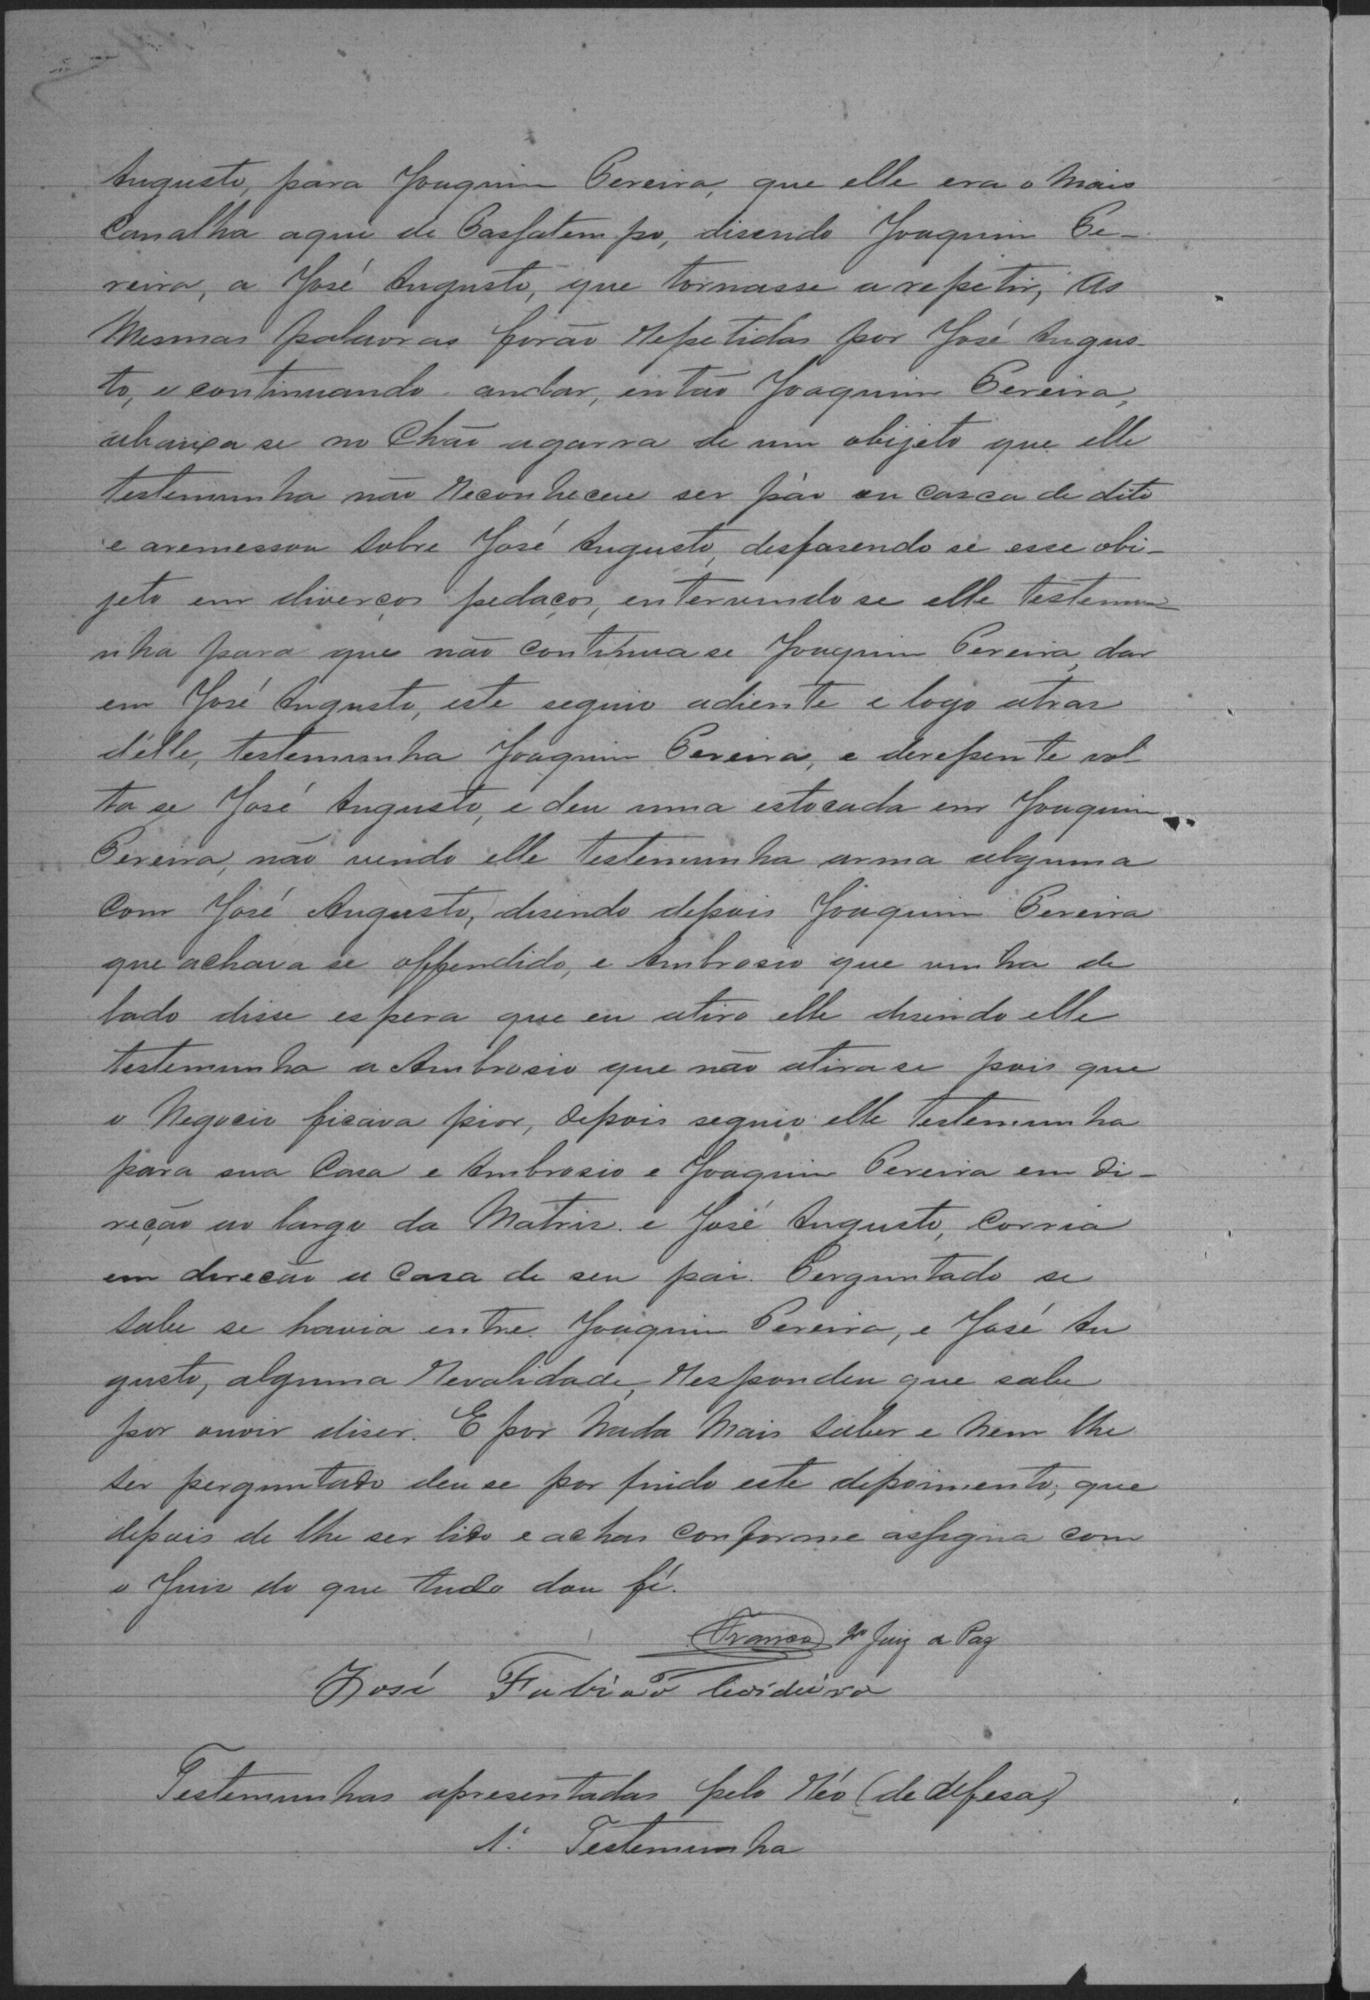 Augusto, para Joaquim Pereira, que elle era o mais
Canalha aqui de Passatempo, disendo Joaquim Pe-
reira, a José Augusto, que tornasse a repetir, as
mesmas palavras forão repetidas por José Augus-
to, e continuando andar, então Joaquim Pereira,
abaixa se no Chão agarra de um obijeto que elle
testemunha não reconheceu ser páo ou casca de dito
e aremessou sobre José Augusto, desfasendo se esse obi-
jeto em diverços pedaços, entervindo se elle testemu-
nha para que não continuase Joaquim Pereira, dar
em José Augusto, este seguio adiente e logo atras
d'elle, testemunha Joaquim Pereira, e derepente vol
ta se José Augusto, e deu uma estocada em Joaquim
Pereira, não vendo elle testemunha arma alguma
com José Augusto, disendo depois Joaquim Pereira
que achava se offendido, e Ambrosio que vinha de
lado disse espera que eu atiro elle disendo elle
testemunha a Ambrosio que não atirase pois que
o Negocio ficava pior, depois seguio elle testemunha
para sua Casa e Ambrosio e Joaquim Pereira em di-
reção ao largo da Matris e José Augusto, corria
em direcão a Casa de seu pai. Perguntado se
sabe se havia entre Joaquim Pereira, e José Au
gusto, alguma revalidade, respondeu que sabe
por ouvir diser. E por nada mais saber e nem lhe
ser perguntado deu se por findo este depoimento, que
depois de lhe ser lido e achar conforme assigna com
o Juis do que tudo dou fé.
Franco Juiz de Paz
José Fabiaõ
Testemunhas apresentadas pelo réo (de defesa)
1ª Testemunha